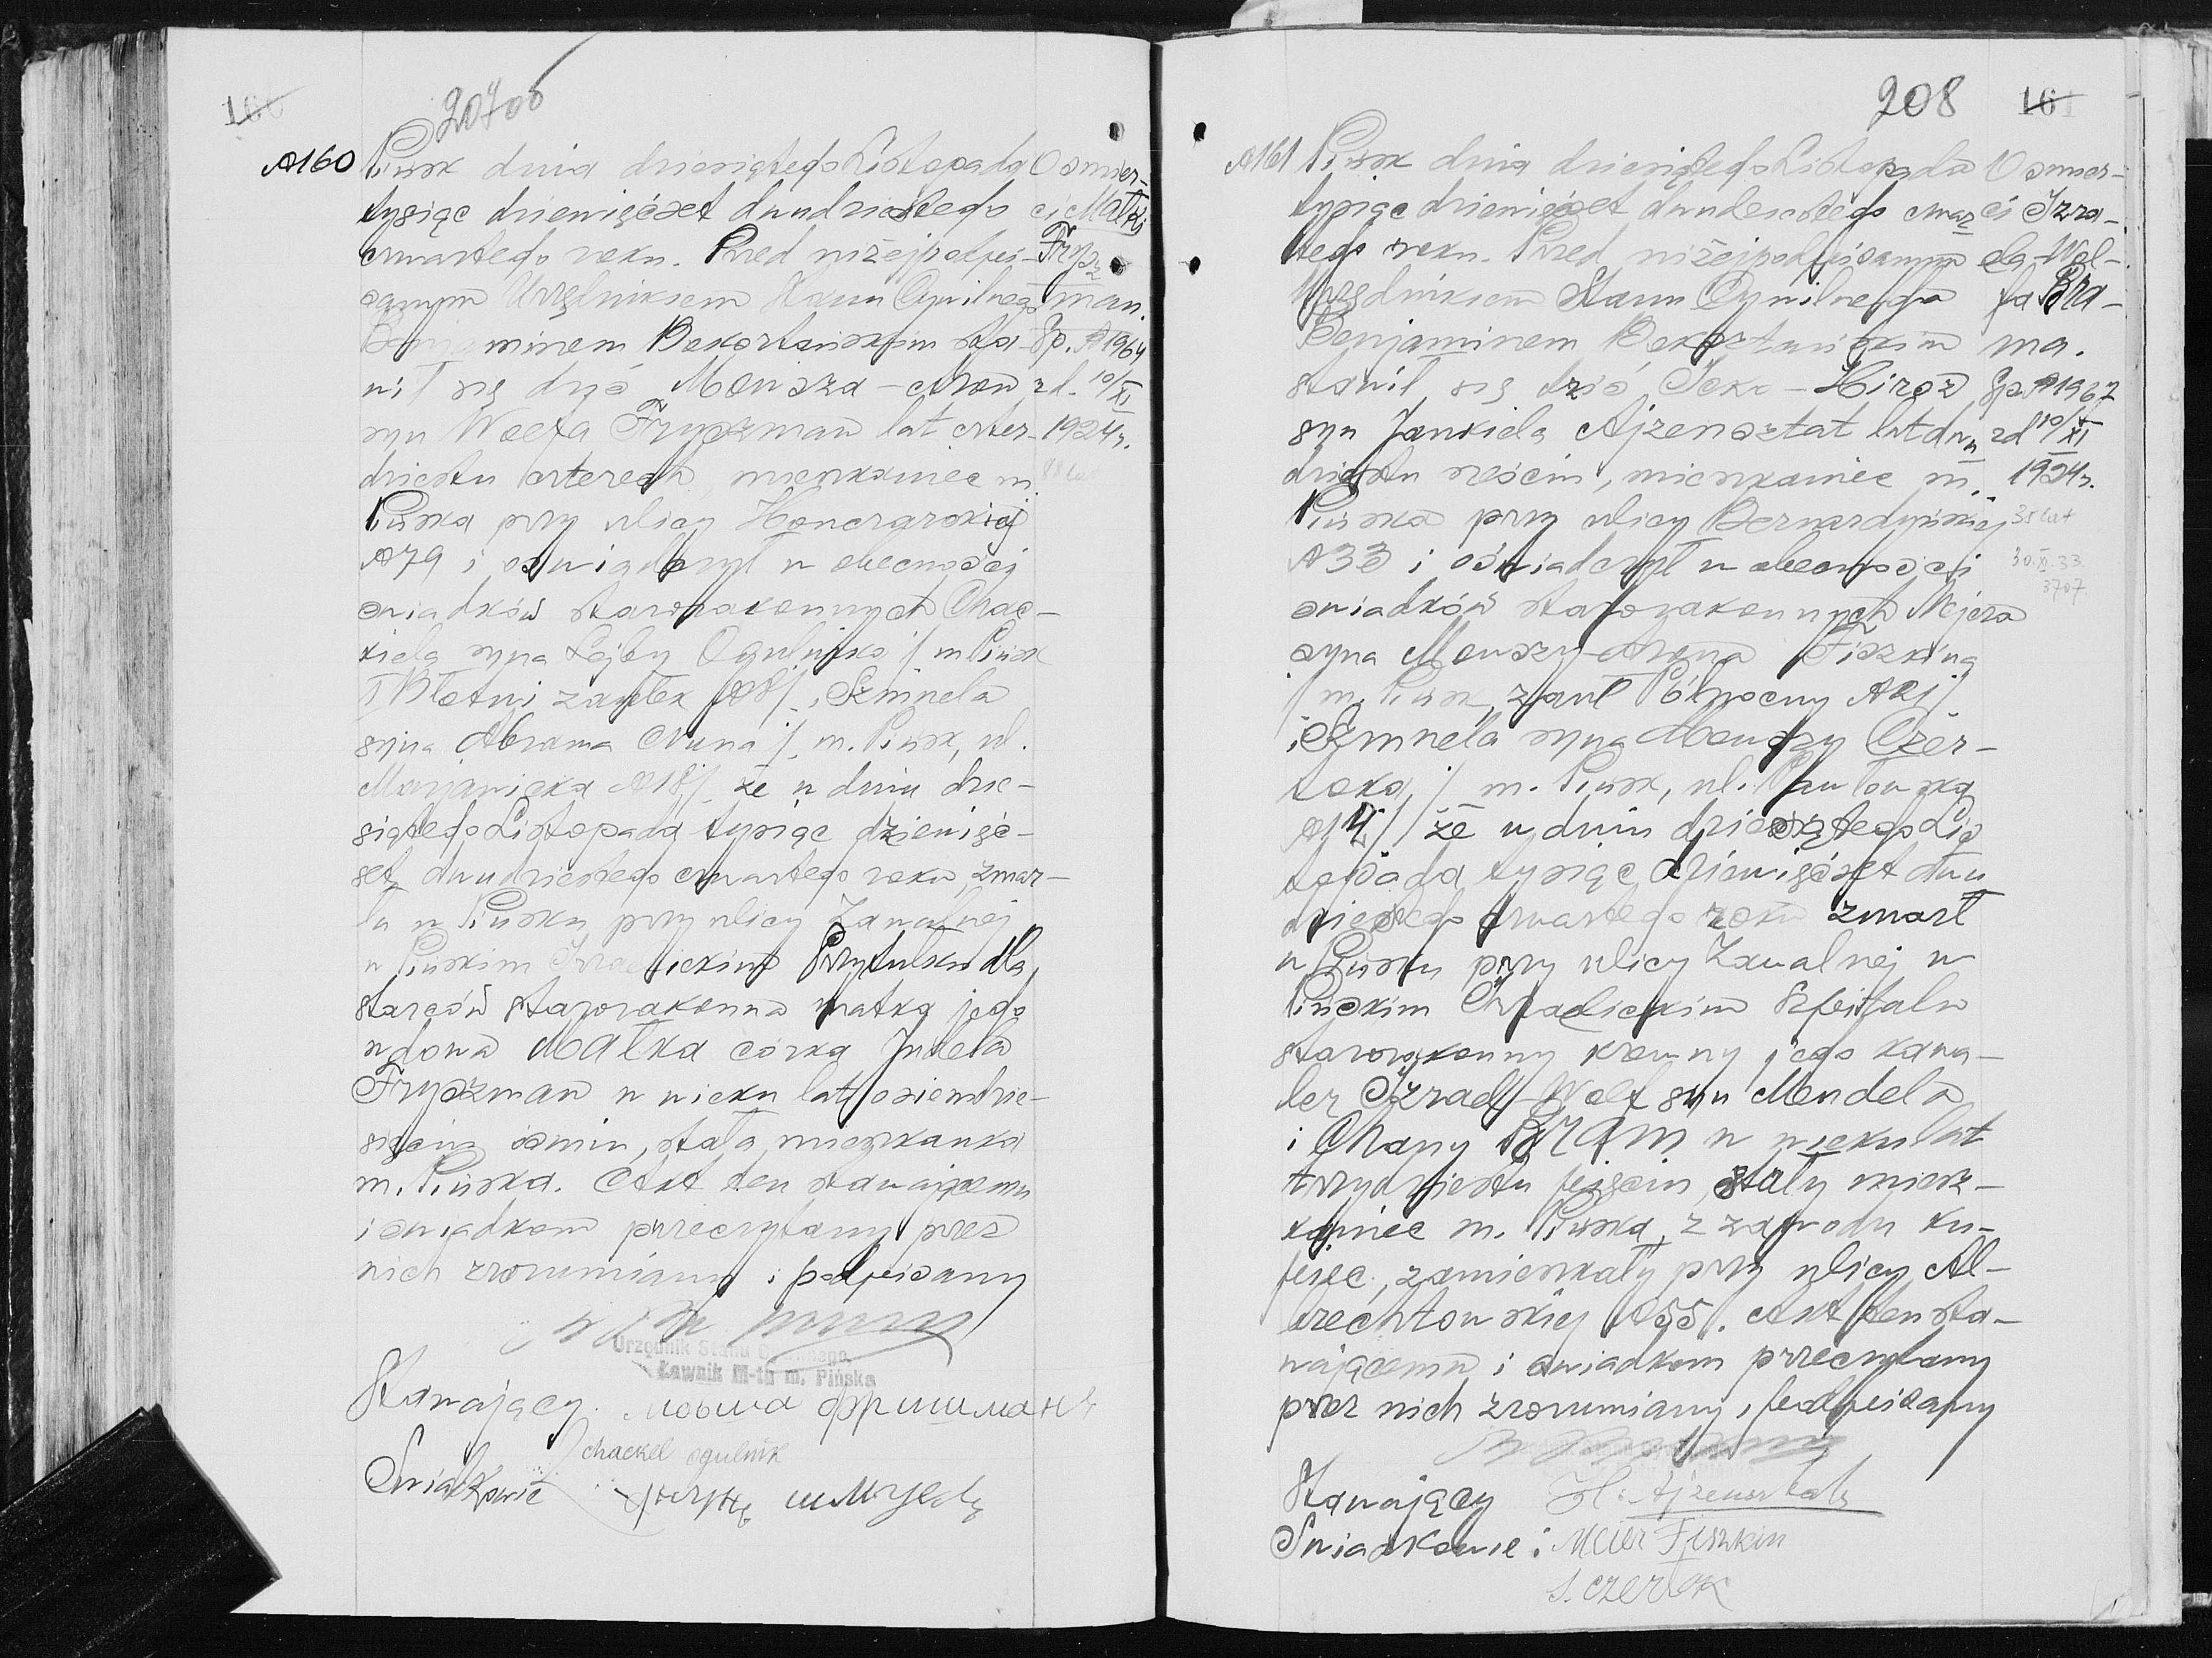 160
207 об
№160 Pińsk dnia dziesiątego Listopada
tysiąc dziewięćset dwudziestego
czwartego roku. Przed niżej podpi-
sanym Urzędnikiem Stanu Cywilnego
Benjaminem Bokortańskim sta-
wił się dziś Mowsza-Aron
syn Wolfa Fryszman lat czter-
dziestu czterech, mieszkaniec m.
Pińska przy ulicy Honczarskiej
№79 i oświadczył w obecności
świadków starozakonnych Chac-
kiela syna Lejby Ogulnika /m Pińsk
I Błotni zaułek №8/ i Szmuela
syna Abrama /m. Pińsk, ul.
№18/ że w dniu dzie-
siątego Listopada tysiąc dziewięć-
set dwudziestego czwartego roku zmar-
ła w Pińsku przy ulicy Zawalnej
w Pińskim Izraelickim Przytułku dla
starców starozakonna matka jego
wdowa Małka córka Judela
Fryszman w wieku lat osiemdzie-
sięciu ośmiu, stała mieszkanka
m. Pińska. Akt ten stawającemu
i świadkom przeczytany przez
nich zrozumiany i podpisany
O śmier-
ci Małki
Frysz
man.
Sp. №1964
zd. 10/XI
1924r.
88 lat
Urzędnik Stanu Cywilnego
Ławnik M-tu m. Pińska
Stawający. Мовша Фришманъ
Świadkowie chackel ogulnik
208 161
№161 Pińsk dnia dziesiątego Listopada
tysiąc dziewięćset dwudziestego czwar
tego roku. Przed niżej podpisanym
Urzędnikiem Stanu Cywilnego
Benjaminem Bokortańskim
stawił się dziś Icko-Hirsz
syn Jankiela Ajzensztat lat dwu
dziestu sześciu, mieszkaniec m.
Pińska przy ulicy Bernardyńskiej
№33 i oświadczył w obecności
świadków starozakonnych Mejera
syna Mowszy-Arona Fiszkina
/m. Pińsk, zauł Północny №2/
i Szmuela syna Mowszy Czer-
toka, /m. Pińsk, ul.
że w dniu dziesiątego Lis
topada tysiąc dziewięćset dwu
dziestego czwartego roku zmarł
w Pińsku przy ulicy Zawalnej w
Pińskim Izraelickim Szpitalu
starozakonny krewny jego kawa-
ler Izrael-Wolf syn Mendela
i Chany Bram w wieku lat
trzydziestu pięciu, stały miesz-
kaniec m. Pińska, z zawodu ku-
piec, zamieszkały przy ulicy Al-
brechtowskiej №55. Akt ten sta-
wającemu i świadkom przeczytany
przez nich zrozumiany i podpisany
O śmier-
ci Izra-
ela-Wol-
fa Bra-
ma.
Sp. №1967
zd 10/XI
1924r.
35 lat
30.XI.33.
3707
Stawający H. Ajzensztat
Świadkowie: Meier Fiszkin
S. czertok